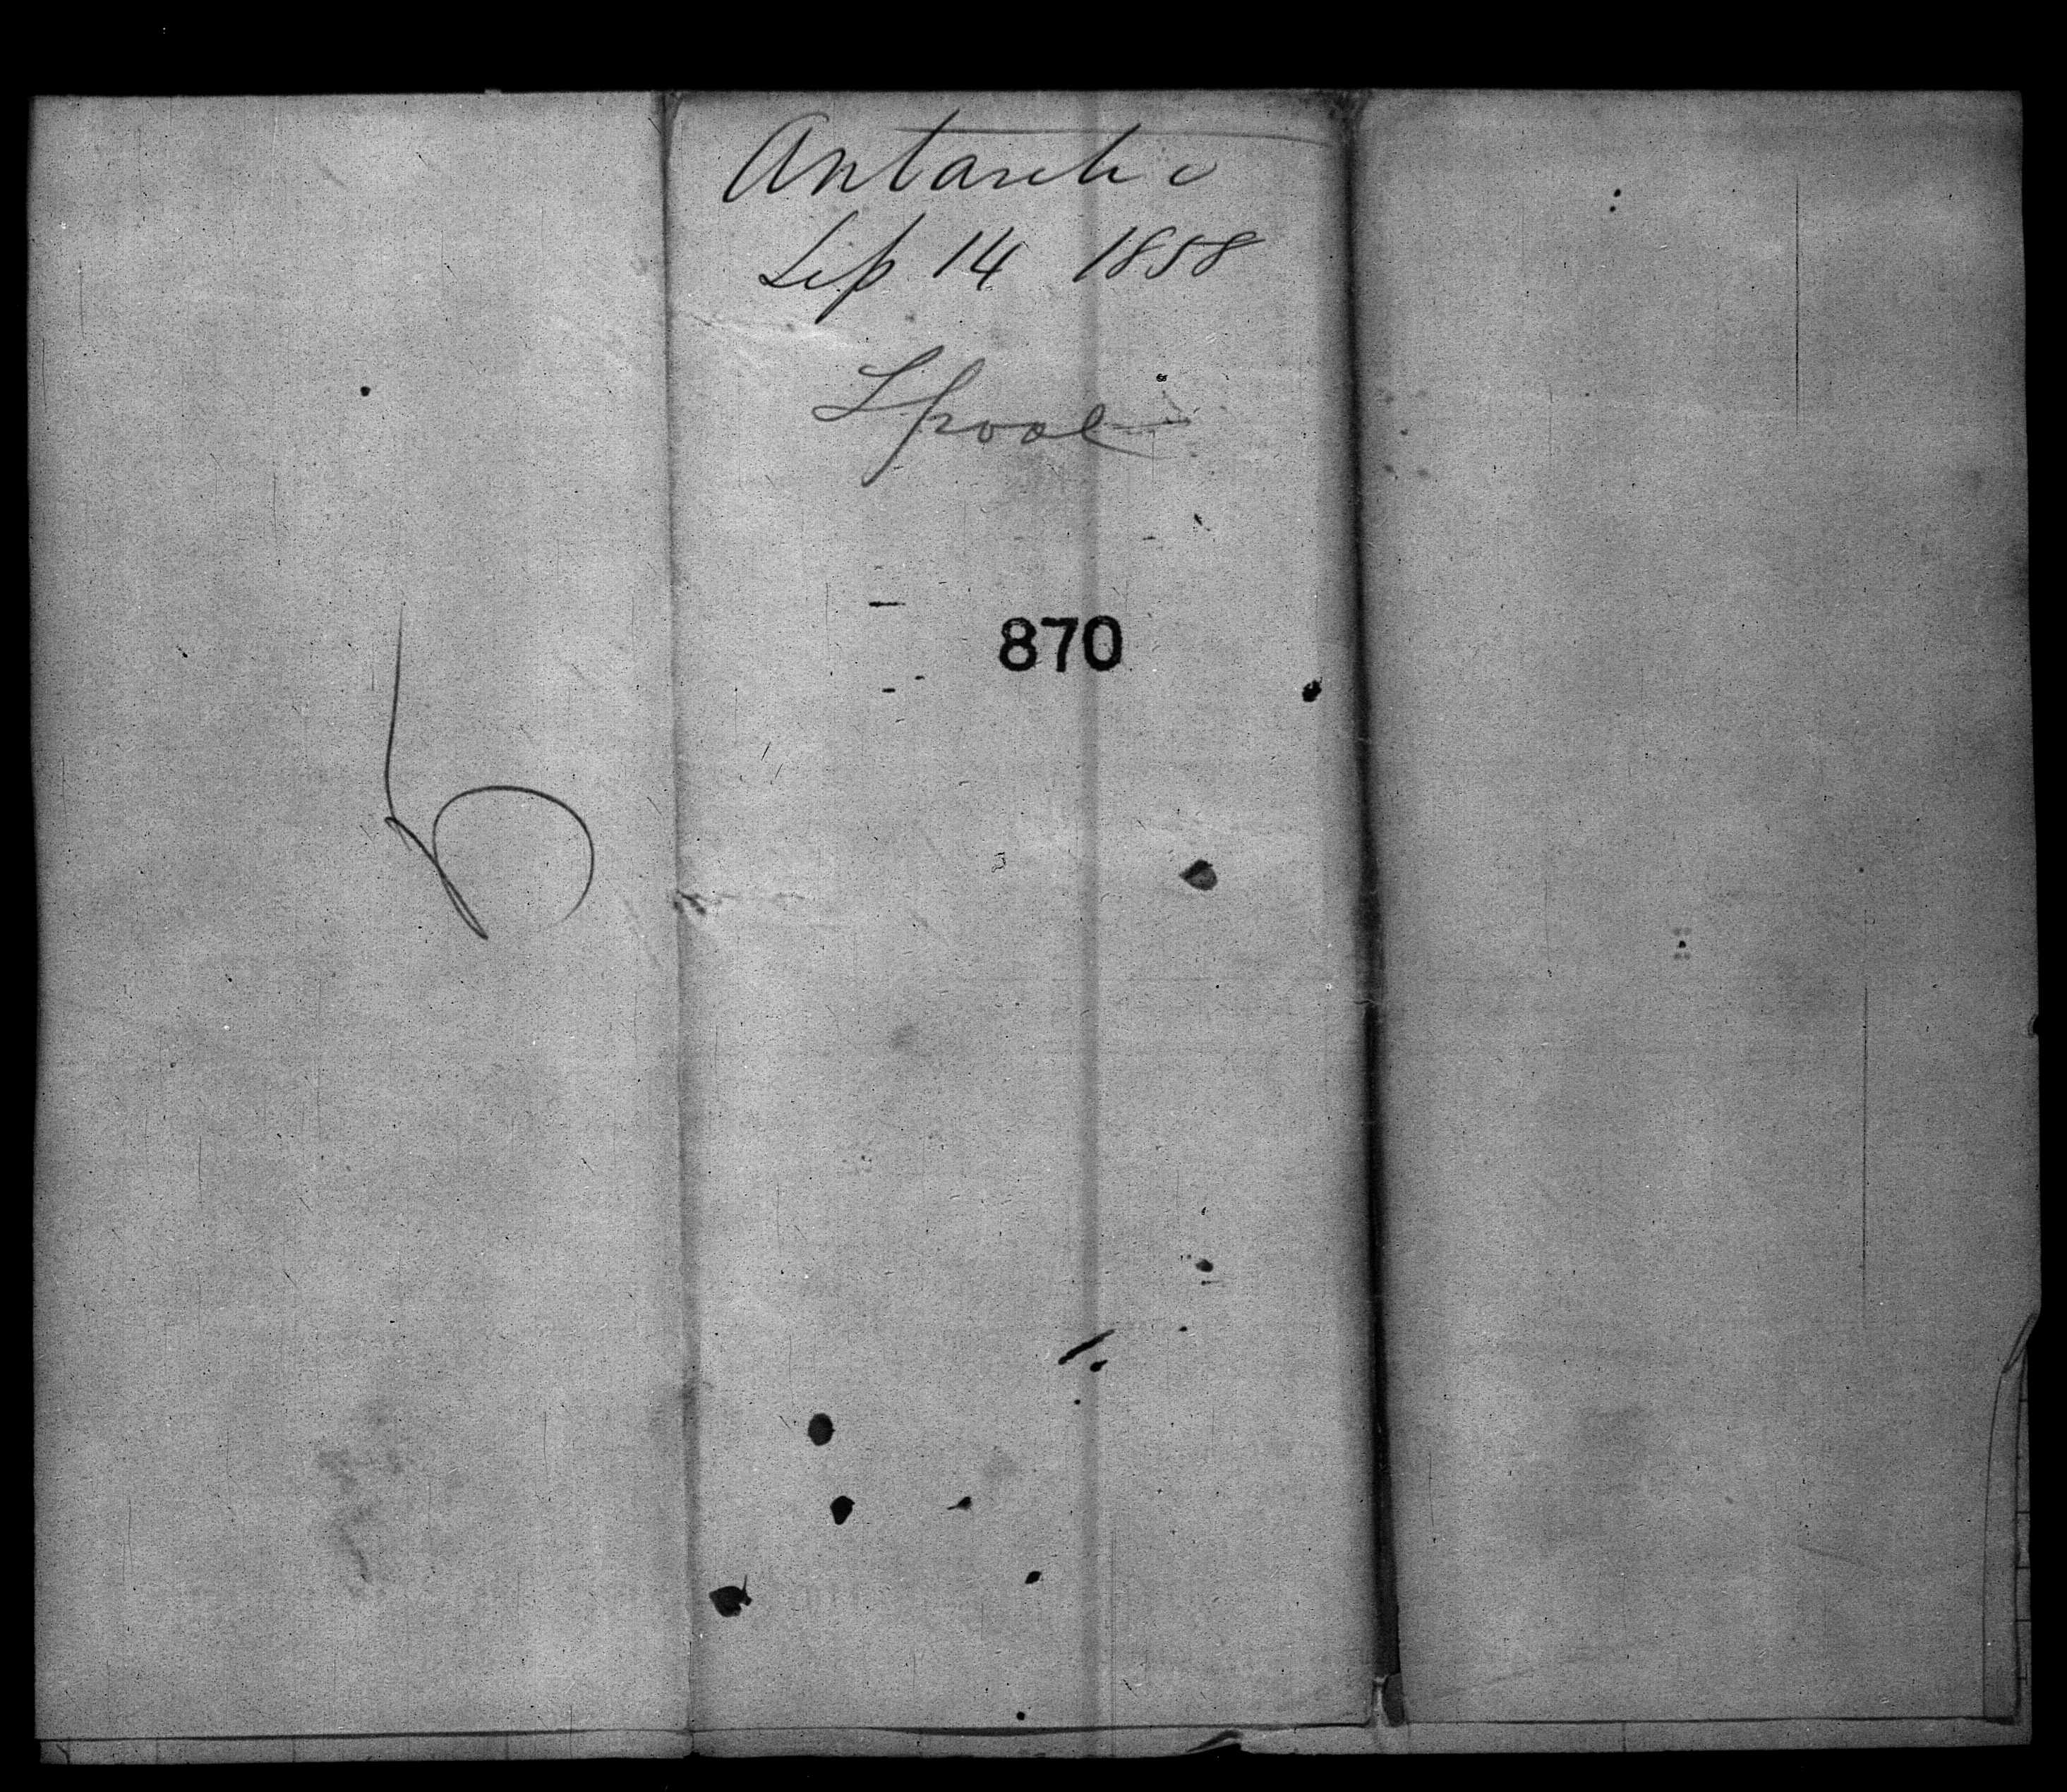 Antarctic
Sep 14 1858
Lpool
870